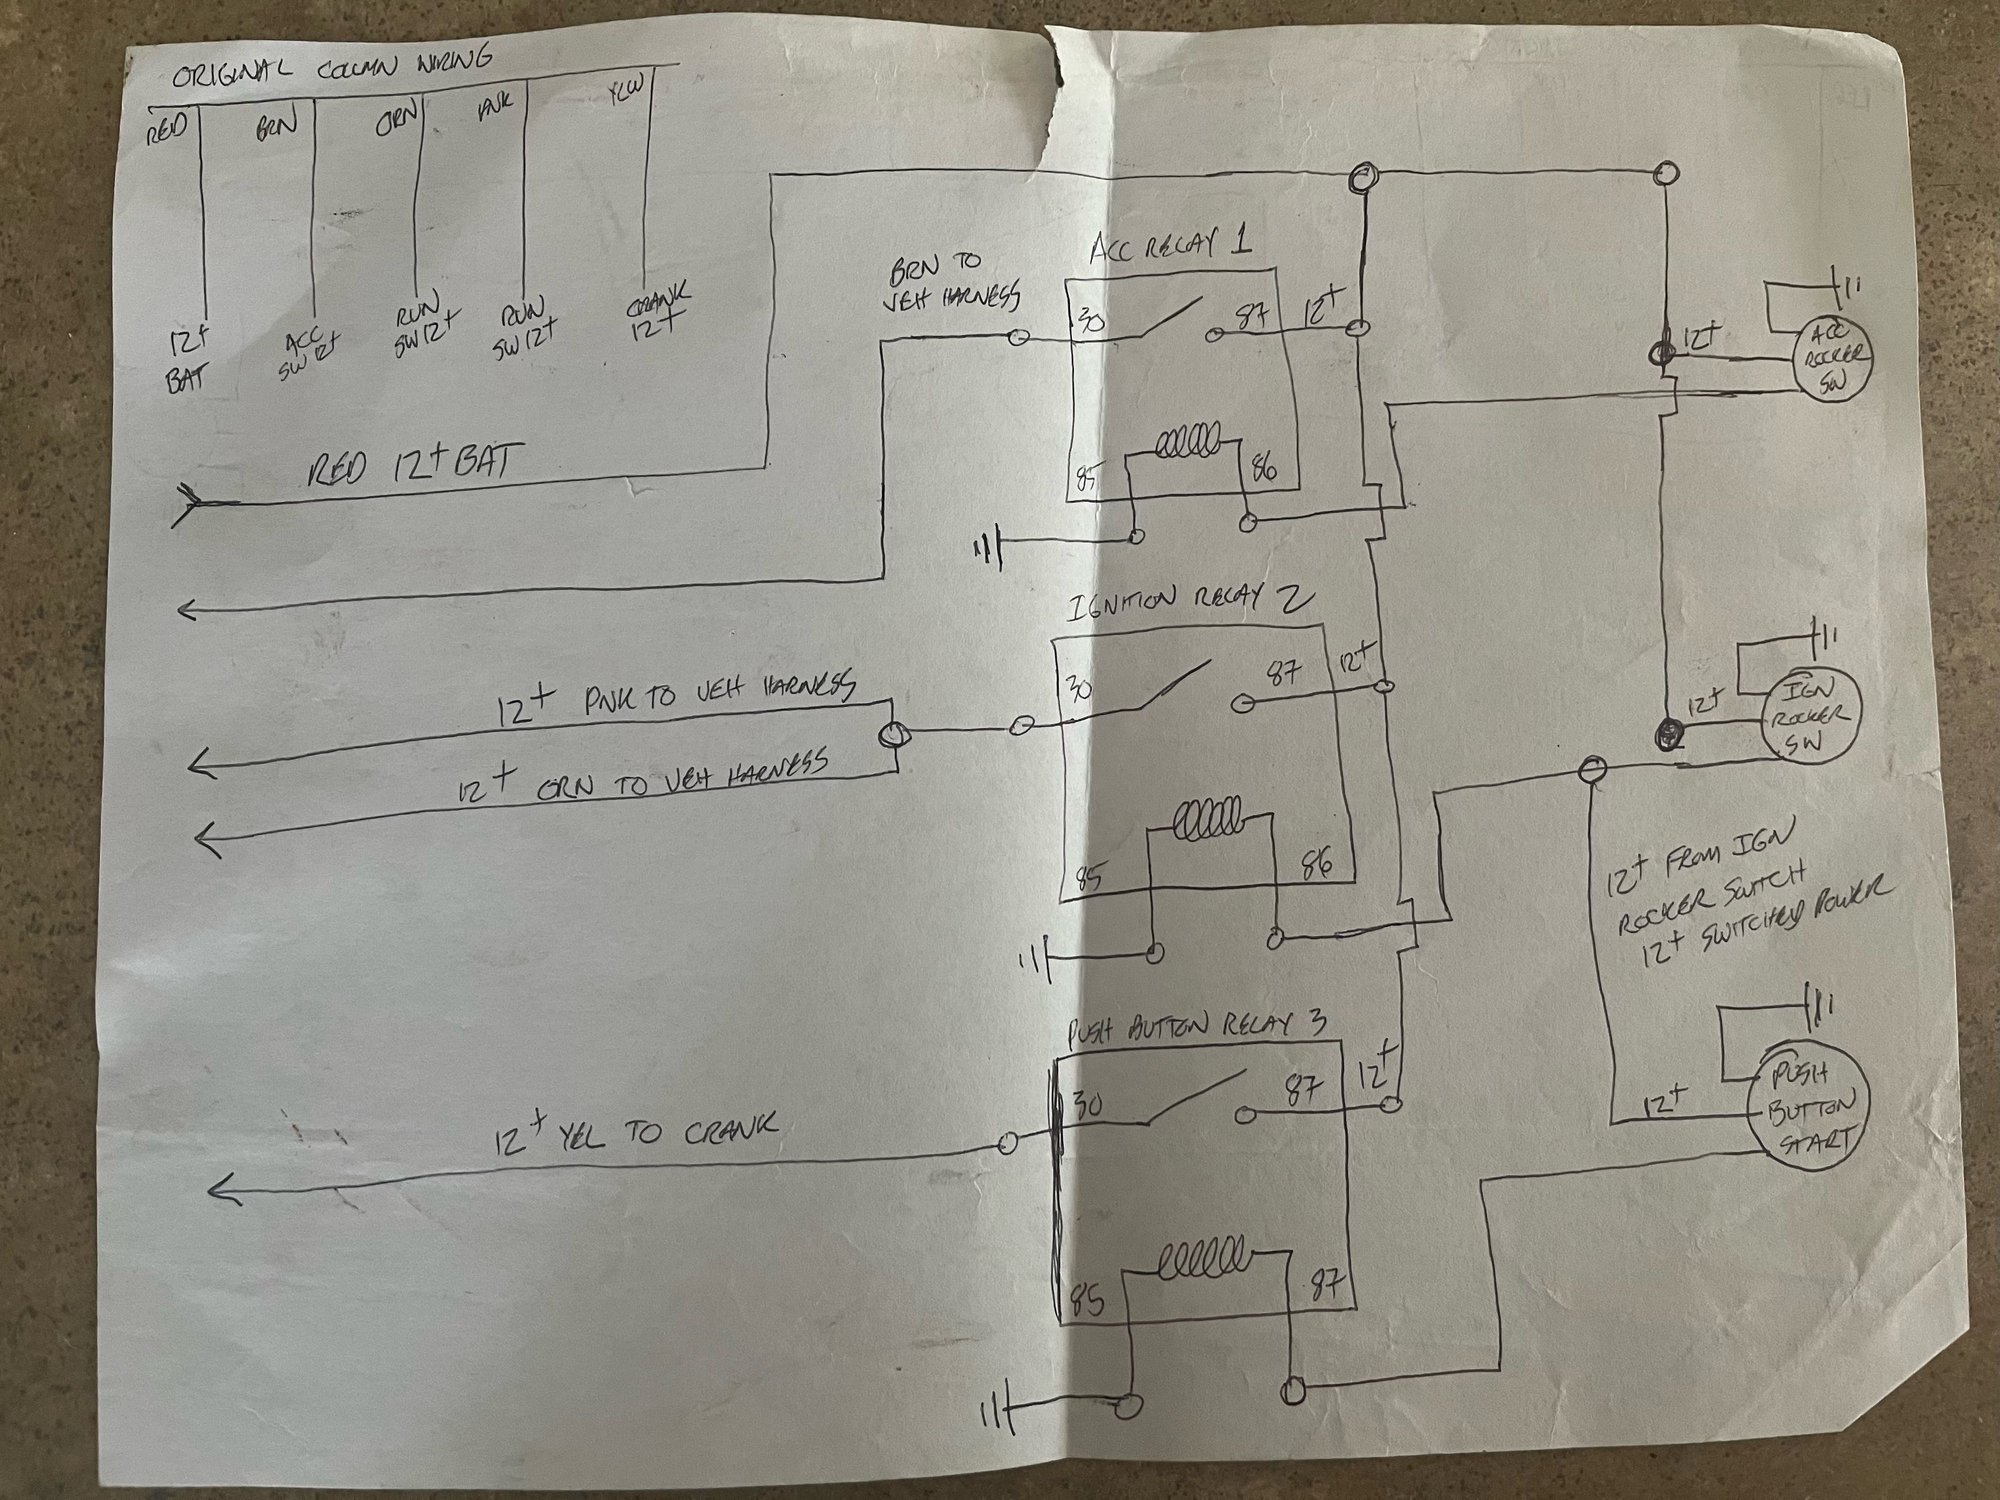 ORIGINAL COLUMN WIRING
RED
BRN
ORN
PNK
YLW
12+
BAT
ACC
SW 12+
RUN
SW 12+
RUN
SW 12+
CRANK
12+
RED 12+ BAT
BRN TO
VEH HARNESS
ACC RELAY 1
30
87
12+
85
86
12+
ACC
ROCKER
SW
IGNITION RELAY 2
30
87
12+
85
86
12+ PNK TO VEH HARNESS
12+ ORN TO VEH HARNESS
12+
IGN
ROCKER
SW
12+ FROM IGN
ROCKER SWITCH
12+ SWITCHED POWER
PUSH BUTTON RELAY 3
30
87
12+
85
87
12+ YEL TO CRANK
12+
PUSH
BUTTON
START